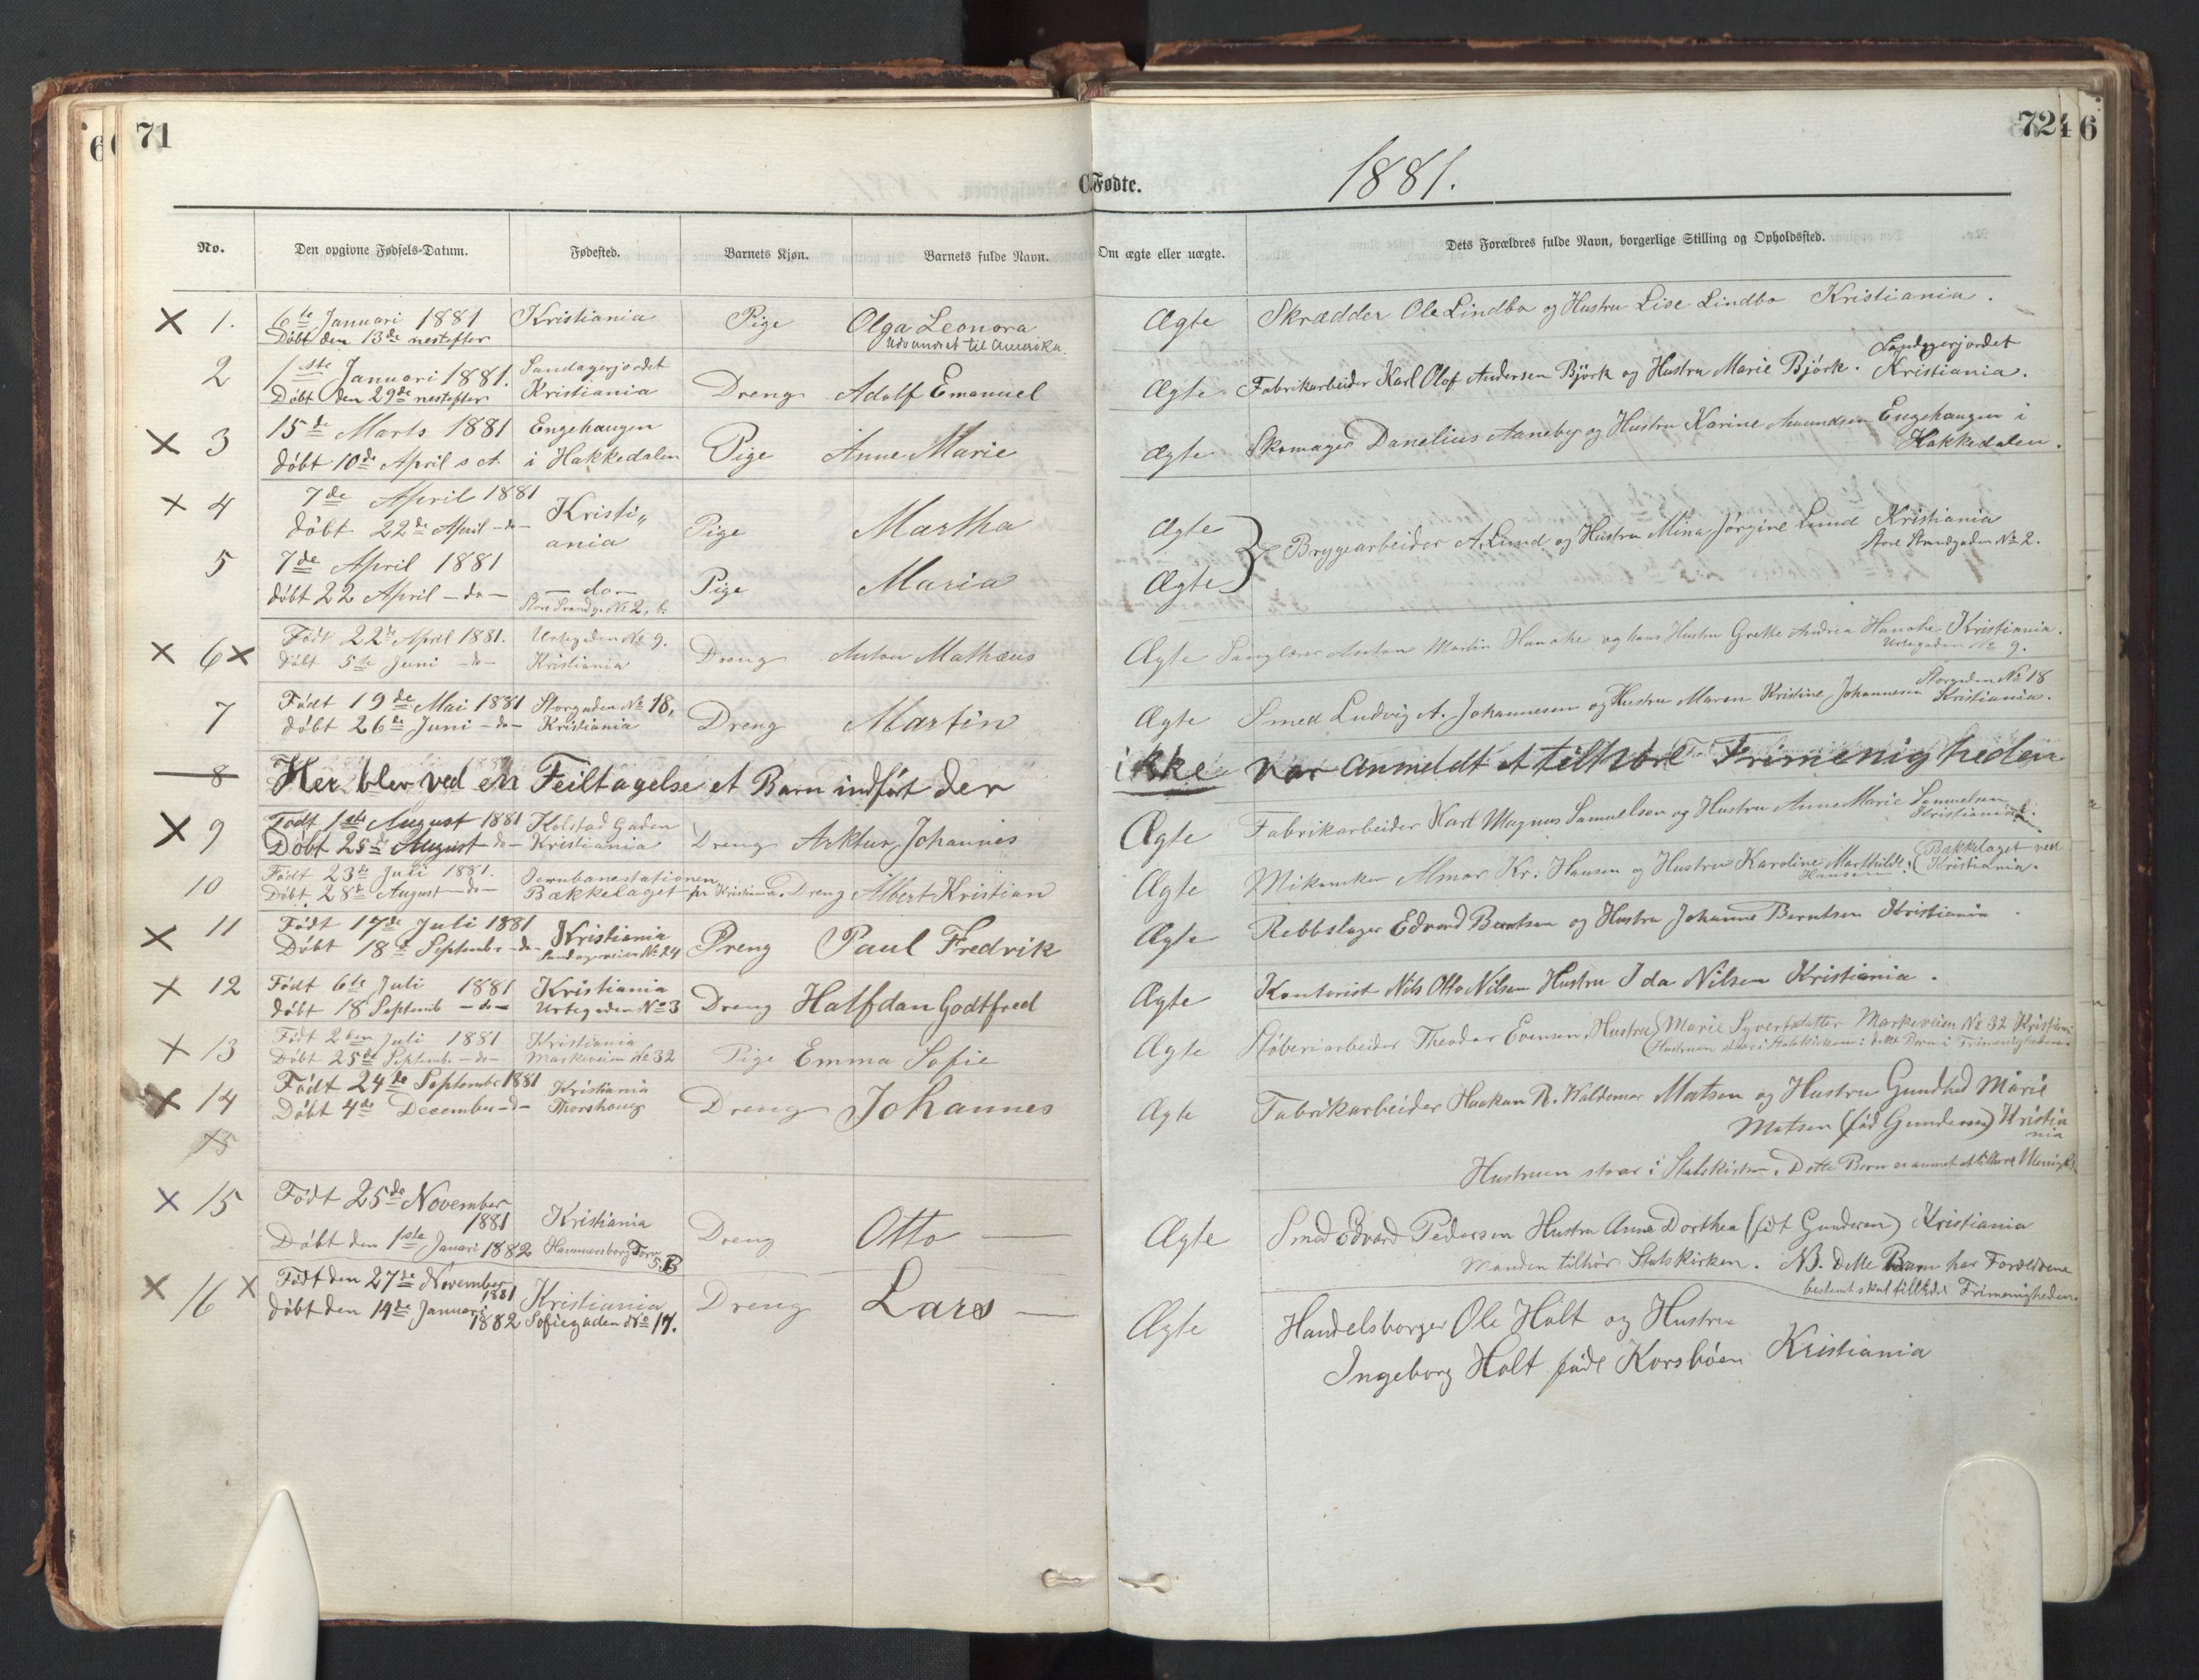 71
72
6
C. Fødte.
1881.
No.
Den opgivne Fødsels-Datum.
Fødested.
Barnets Kjøn.
Barnets fulde Navn.
Om ægte eller uægte.
Dets Forældres fulde Navn, borgerlige Stilling og Opholdssted.
X 1. 6te Januari 1881 Kristiania Pige Olga Leonora Ægte Skrædder Ole Lindbo og Hustru Lise Lindbo Kristiania.
Døbt den 13de nestefter Udvandret til Amerika.
2 1ste Januari 1881. Sandagerjordet Dreng Adolf Emanuel Ægte Fabrikarbeider Karl Olof Andersen Björk og Hustru Marie Björk. Sandagerjordet
Døbt den 29de nestefter Kristiania Kristiania.
X 3 15de Marts 1881 Engehaugen Pige Anne Marie Ægte Skomager Danelius Aaneby og Hustru Karine Amundsen Engehaugen i
døbt 10de April s. A. i Hakkedalen Hakkedalen.
X 4 7de April 1881 Kristi„ Pige Martha Ægte Bryggearbeider A. Lund og Hustru Mina Jørgine Lund Kristiania
døbt 22de April -do- ania Store Strandgaden No 2.
5 7de April 1881 -do- Pige Maria Ægte
døbt 22 April -do- Store Strandg. No 2, b.
X 6 X Født 22de April 1881. Urtegaden No 9. Dreng Anton Mathæus Ægte Sanglærer Anton Martin Hanche og hans Hustru Grethe Andrea Hanche Kristiania.
døbt 5te Juni -do- Kristiania Urtegaden No 9.
7 Født 19de Mai 1881 Storgaden No 18, Dreng Martin Ægte Smed Ludvig A. Johannesen og Hustru Maren Kristine Johannesen Storgaden No 18
døbt 26de Juni -do- Kristiania Kristiania.
8 Her blev ved en Feiltagelse et Barn indført der ikke var anmeldt at tilhøre Frimenigheden
X 9 Født 1ste August 1881 Kolstad Gaden Dreng Arktur Johannes Ægte Fabrikarbeider Karl Magnus Samuelsen og Hustru Anne Marie Samuelsen
Døbt 25de August -do- Kristiania Kristiania.
10 Født 23de Juli 1881. Jernbanestationen Dreng Albert Kristian Ægte Mikaniker Almar Kr. Hansen og Hustru Karoline Marthilde Hansen. (Bækkelaget ved
Døbt 28de August -do- Bækkelaget pr Kristiania. Kristiania.
X 11 Født 17de Juli 1881 Kristiania Dreng Paul Fredrik Ægte Rebbslager Edvard Berntsen og Hustru Johanne Berntsen Kristiania.
Døbt 18de September -do- Sandagerveien No 24
X 12 Født 6te Juli 1881 Kristiania Dreng Halfdan Godtfred Ægte Kontorist Nils Otto Nilsen Hustru Ida Nilsen Kristiania.
døbt 18 Septemb -do- Urtegaden No 3
X 13 Født 2den Juli 1881 Kristiania Pige Emma Sofie Ægte Støberiarbeider Theodor Evensen, Hustru Marie Syvertsdatter Markeveien No 32 Kristiani
Døbt 25de Septemb. -do- Markeveien No 32 (Hustruen staar i Statskirken; dette Barn i Frimenigheden.
X 14 Født 24de Septembr 1881 Kristiania Dreng Johannes Ægte Fabrikarbeider Haakan R. Waldemar Matsen og Hustru Gunhild Marie
Døbt 4de December -do- Thorshoug Matsen (fød Gundersen) Kristia
nia
15
Hustruen staar i Statskirken. Dette Barn er anmet at tilhøre Menigh.
X 15 Født 25de November Kristiania Dreng Otto Ægte Smed Edvard Pedersen Hustru Anne Dorthea (født Gundersen) Kristiania
1881
Døbt den 1ste Januari 1882 Hammersborg Torv 5.B Manden tilhør Statskirken. NB. dette Barn har Forældrene
bestemt skal tilhøre Frimenigheden.
X 16 X Født den 27de November Kristiania Dreng Lars Ægte Handelsborger Ole Holt og Hustru
1881
døbt den 14de Januari 1882 Sofiegaden No 17. Ingeborg Holt født Korsbøen Kristiania